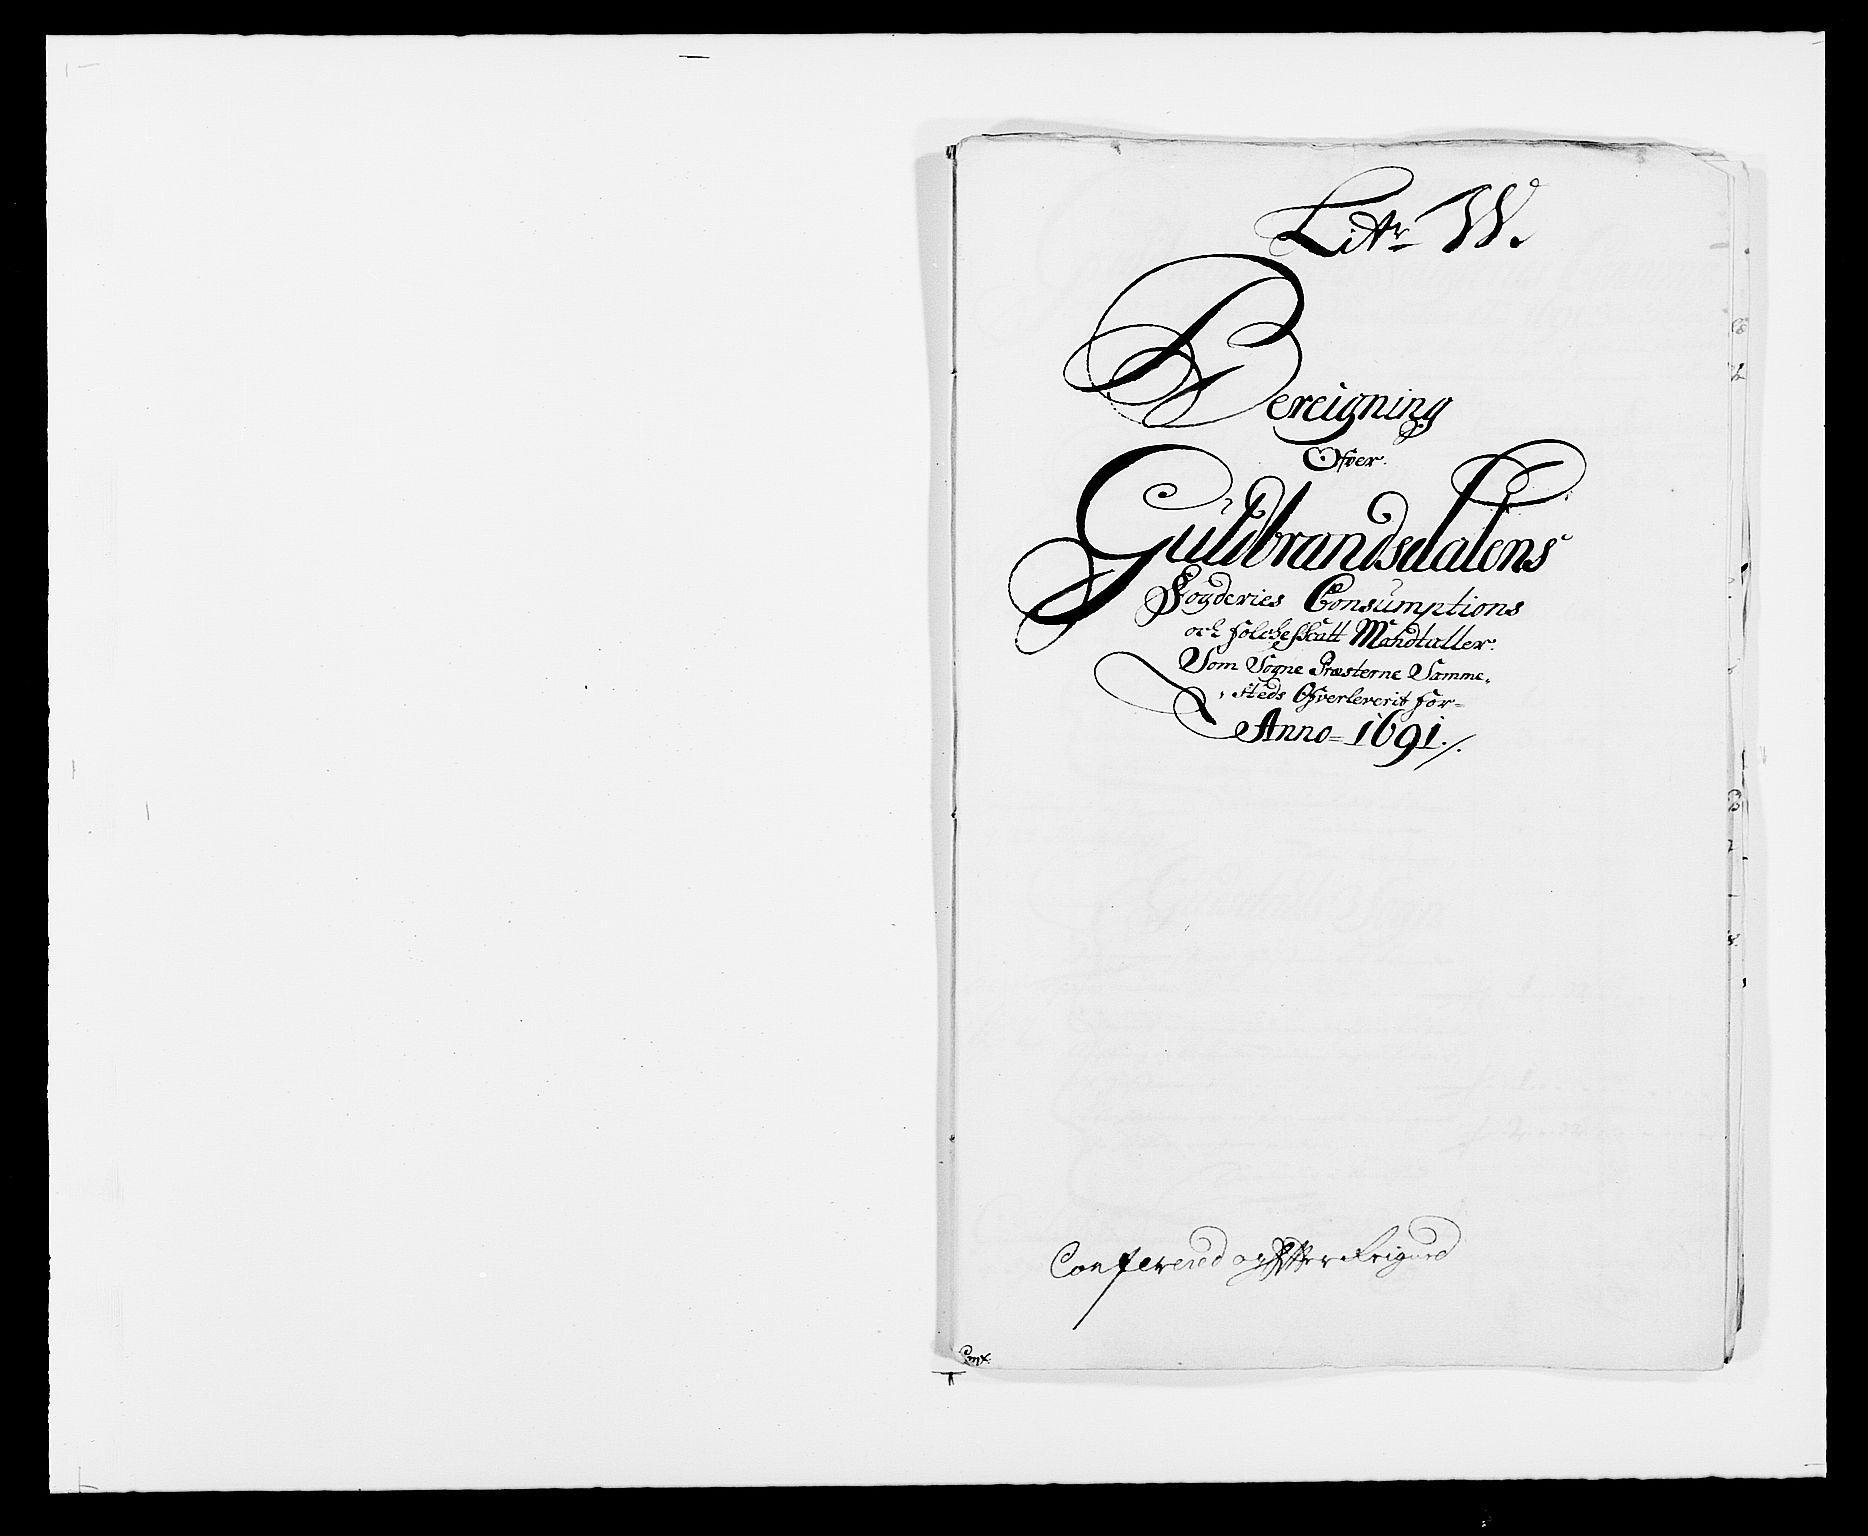 Litr W.
Bereigning
Ofver.
Guldbrandsdalens
Fogderies Consumptions
och folcheskatt Mandtaller.
Som Sogne Præsterne Samme,
steds Ofverleverit for=
Anno= 1691./.
Conferered og